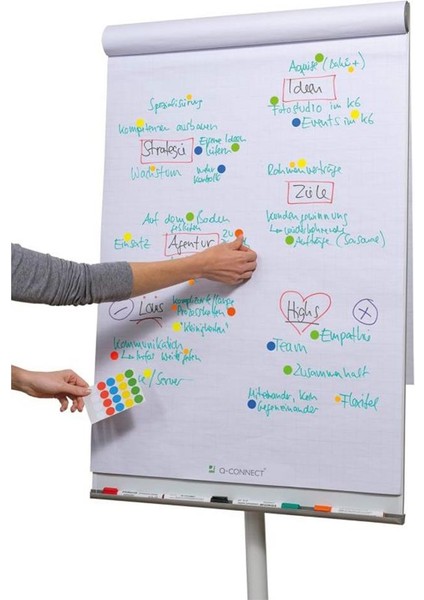 Akquise (Bahn +)
Ideen
Fotostudio im K6
Events im K6
Spezialisierung
Kompetenzen ausbauen
Strategie
Eigene Ideen
liefern
Wachstum
mehr
Kontrolle
Rahmenverträge
Ziele
Kundengewinnung
Aufträge
Auf dem Boden
bleiben
Einsatz
Agentur
Lows
"Kleinigkeiten"
Kommunikation
Server
Highs
Empathie
Team
Zusammenhalt
Miteinander, kein
Gegeneinander
Flexibel
Q-CONNECT